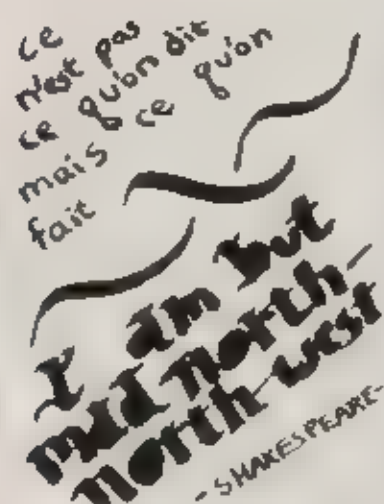 ce
n'est pas
ce qu'on dit
mais ce qu'on
fait
I am but
mad north-
north-west
-SHAKESPEARE-